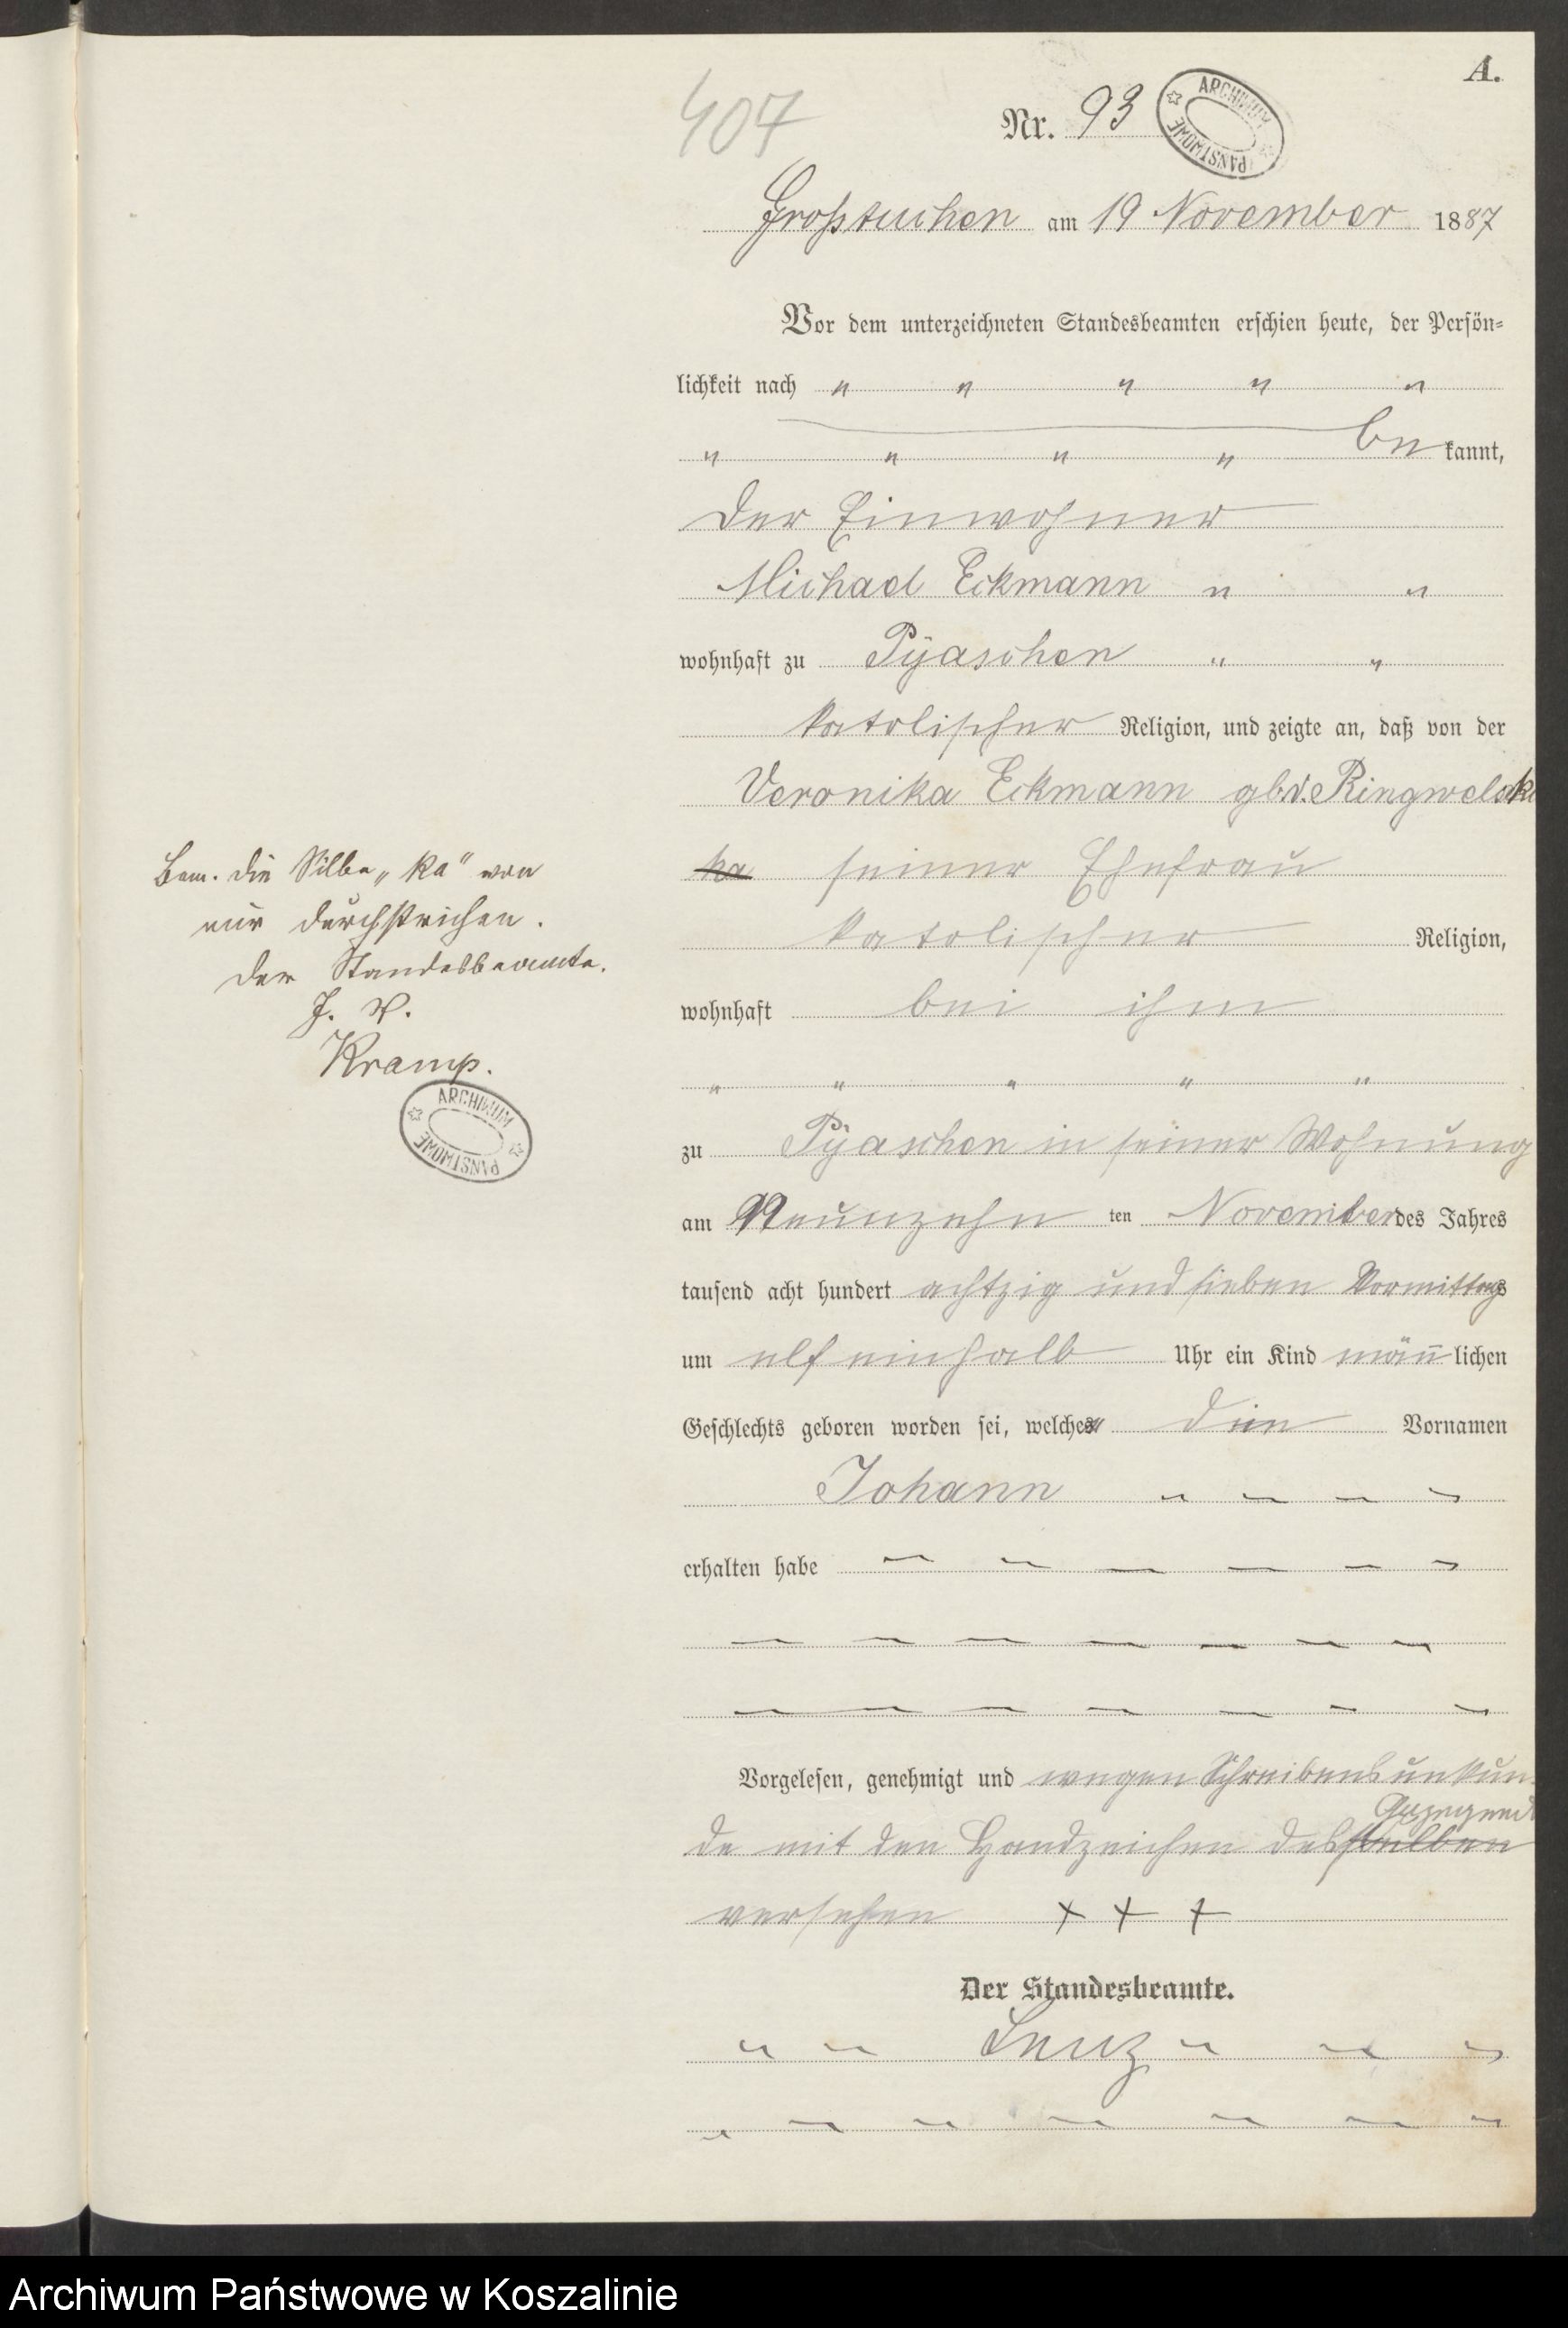 A.
407
Nr. 93
ARCHIWUM PAŃSTWOWE
Großtuchen am 19 November 1887
Vor dem unterzeichneten Standesbeamten erschien heute, der Persön-
lichkeit nach " " " " "
" " " " be kannt,
der Einwohner
Michael Eckmann " "
wohnhaft zu Pyaschen " "
katolischer Religion, und zeigte an, daß von der
Veronika Eckmann geb. Ringwelski
ka seiner Ehefrau
katolischer Religion,
wohnhaft bei ihm
" " " " "
zu Pyaschen in seiner Wohnung
am Neunzehn ten November des Jahres
tausend acht hundert achtzig und sieben Vormittags
um elf einhalb Uhr ein Kind männlichen
Geschlechts geboren worden sei, welches den Vornamen
Johann
erhalten habe
Vorgelesen, genehmigt und wegen Schreibensunkun-
Anzeigend
de mit den Handzeichen desselben
versehen + + +
Der Standesbeamte.
Lenz
Bem. die Silbe „ka" von
mir durchstrichen.
Der Standesbeamte.
J. V.
Kramp.
ARCHIWUM PAŃSTWOWE
Archiwum Państwowe w Koszalinie